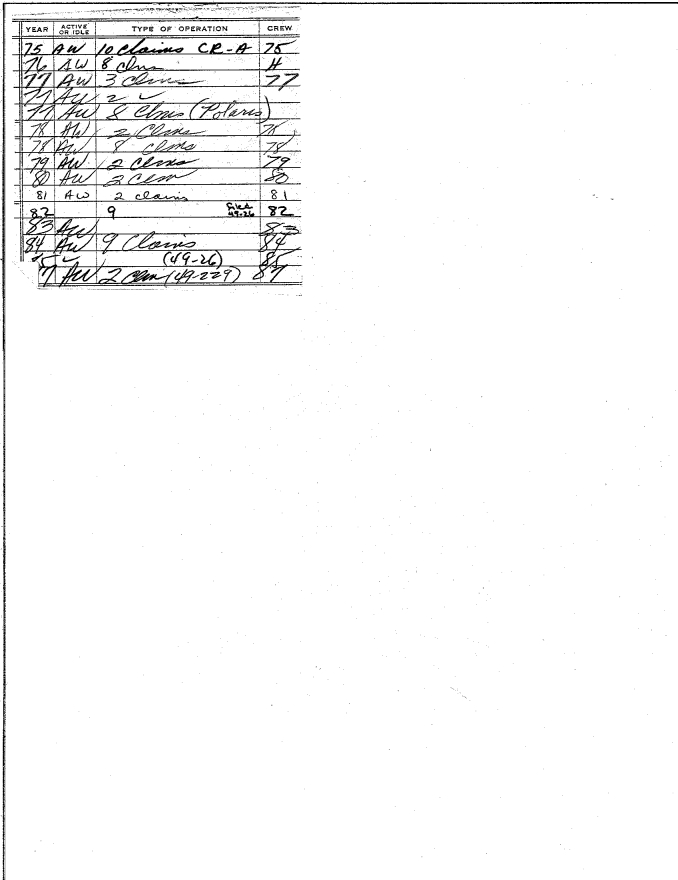 YEAR ACTIVE OR IDLE TYPE OF OPERATION CREW
75 AW 10 Claims CR-A 75
76 AW 8 Clms H
77 AW 3 Clms 77
77 AW 2 ✓
77 AW 8 Clms (Polaris)
78 AW 2 Clms 78
78 AW 8 Clms 78
79 AW 2 Clms 79
80 AW 2 Clm 80
81 AW 2 claims 81
82 9 49-26 82
83 AW 83
84 AW 9 Claims 84
5 ✓ (49-26) 85
7 AW 2 Clm (49-229) 87